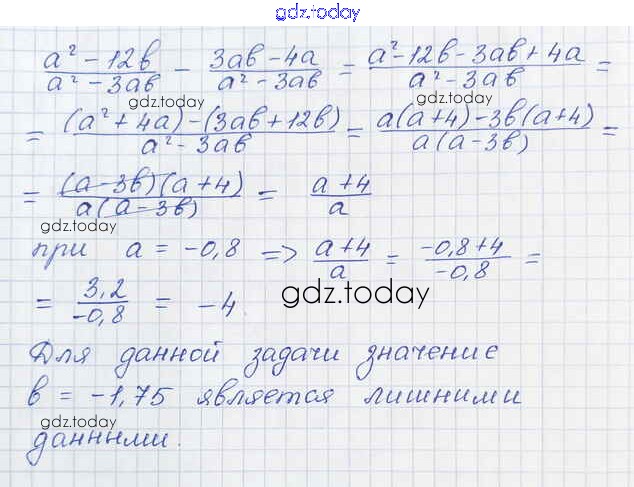 gdz.today
(a² - 12b)/(a² - 3ab) - (3ab - 4a)/(a² - 3ab) = (a² - 12b - 3ab + 4a)/(a² - 3ab) =
gdz.today
gdz.today
= ((a² + 4a) - (3ab + 12b))/(a² - 3ab) = (a(a+4) - 3b(a+4))/(a(a - 3b)) =
= ((a - 3b)(a + 4))/(a(a - 3b)) = (a + 4)/a
gdz.today
при a = -0,8 => (a+4)/a = (-0,8+4)/(-0,8) =
= 3,2/(-0,8) = -4
gdz.today
Для данной задачи значение
b = -1,75 является лишними
gdz.today
данными.